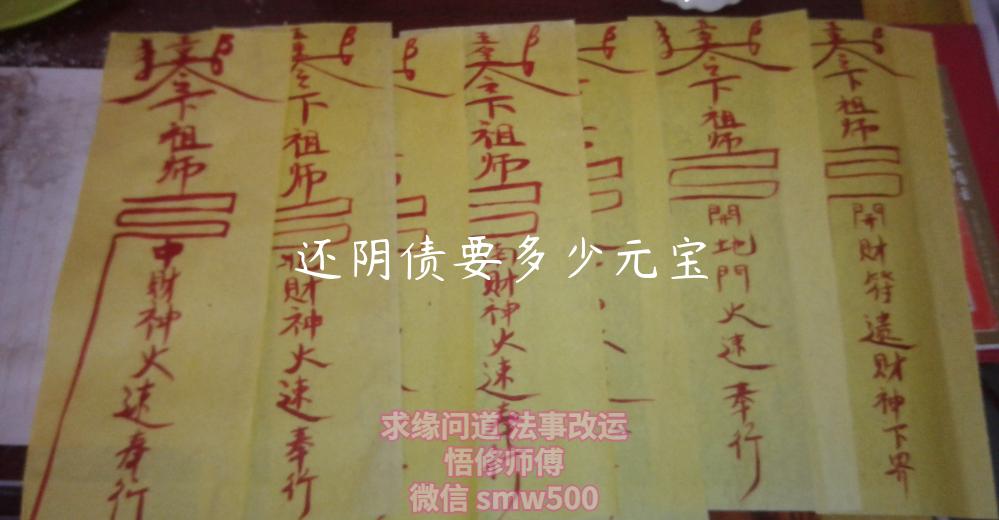 下祖师
中財神火速奉行
下祖师
財神火速奉行
下祖师
財神火速奉行
下祖师
開地門火速奉行
下祖师
開財符遣財神下界
还阴债要多少元宝
求缘问道 法事改运
悟修师傅
微信 smw500